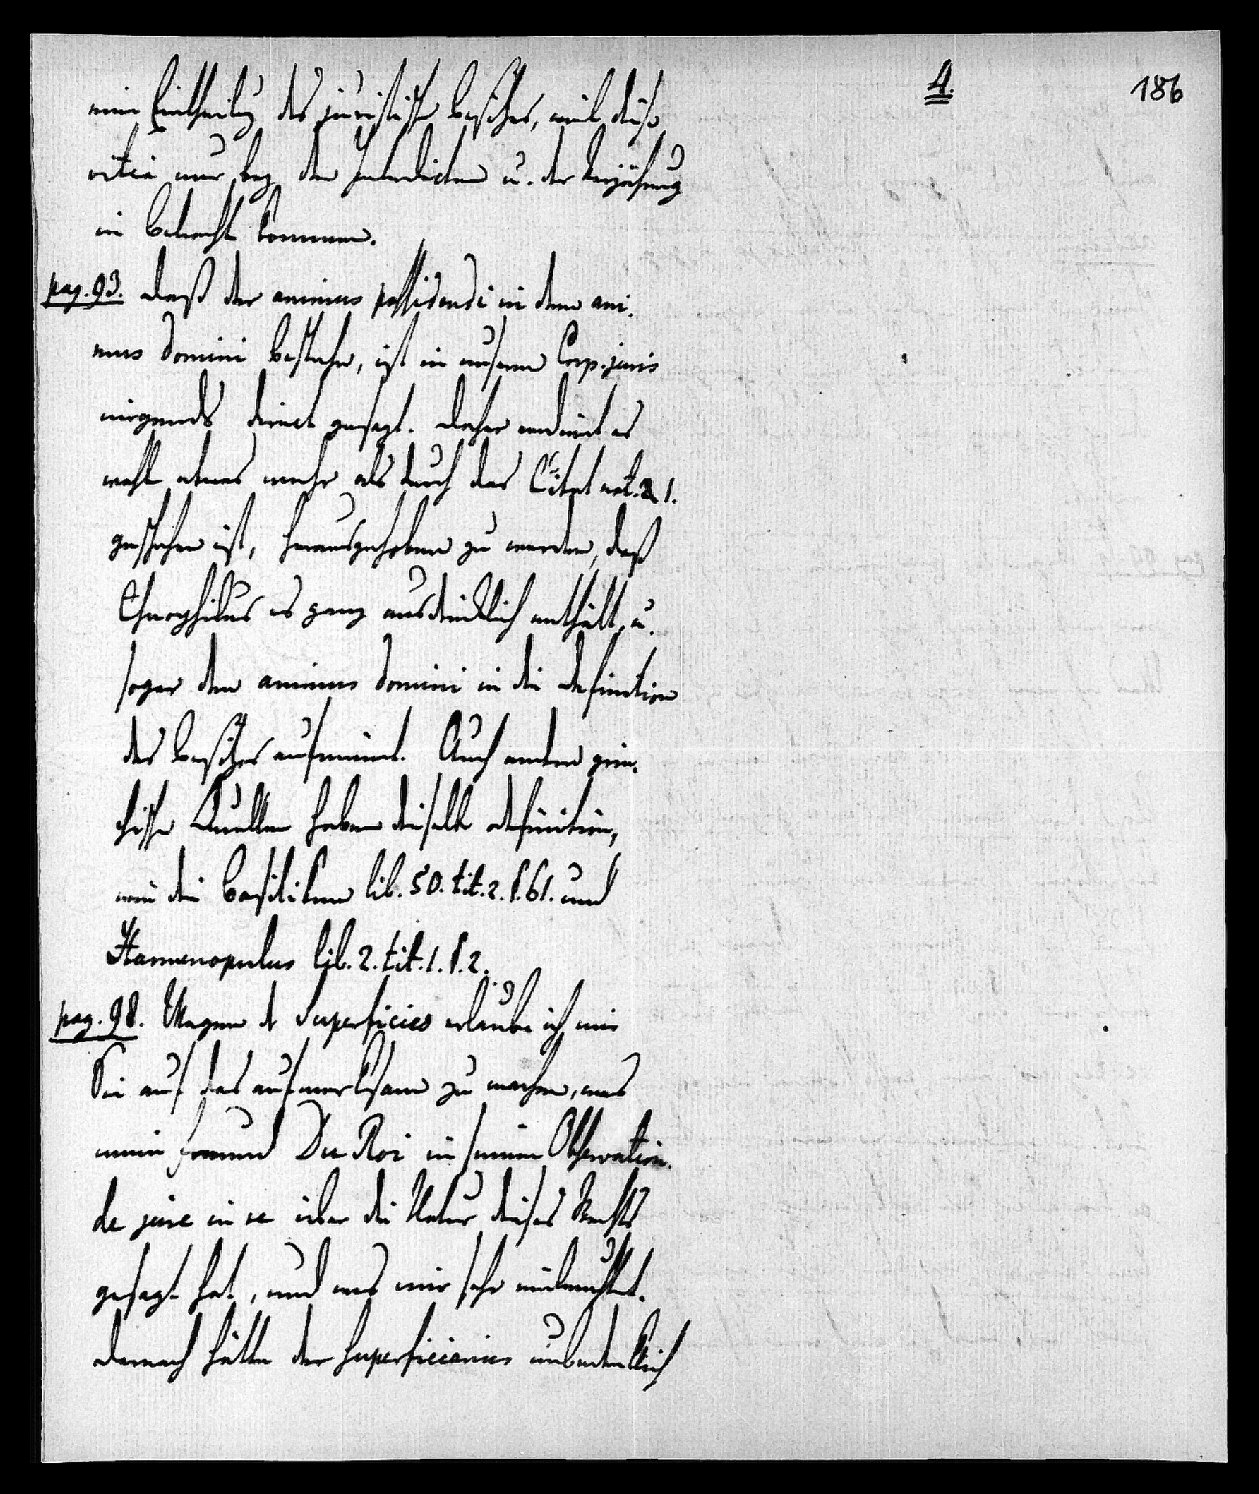 4.
186
eine Eintheilung des juristischen Besitzes, weil diese
vitia nur bey den Interdicten u. der Verjährung
in Betracht kommen.
pag. 93. Daß der animus possidendi in dem ani-
mus domini bestehe, ist in unserm Corp. juris
nirgends direct gesagt. Daher verdient es
wohl etwas mehr als durch das Citat not. 1.
geschehen ist, herausgehoben zu werden, daß
Theophilus es ganz ausdrücklich enthält, u.
sogar den animus domini in die Definition
des Besitzes aufnimmt. Auch andere grie-
chische Quellen haben dieselbe Definition,
wie die Basiliken lib. 50. tit. 2. l. 61. und
Harmenopulus lib. 2. tit. 1. §. 2.
pag. 98. Wegen der Superficies erlaube ich mir
Sie auf das aufmerksam zu machen, was
mein Freund Du Roi in seinen Observation.
de jure in re über die Natur dieses Rechts
gesagt hat, und was mir sehr einleuchtet.
Darnach hätte der Superficiarius unbedenklich